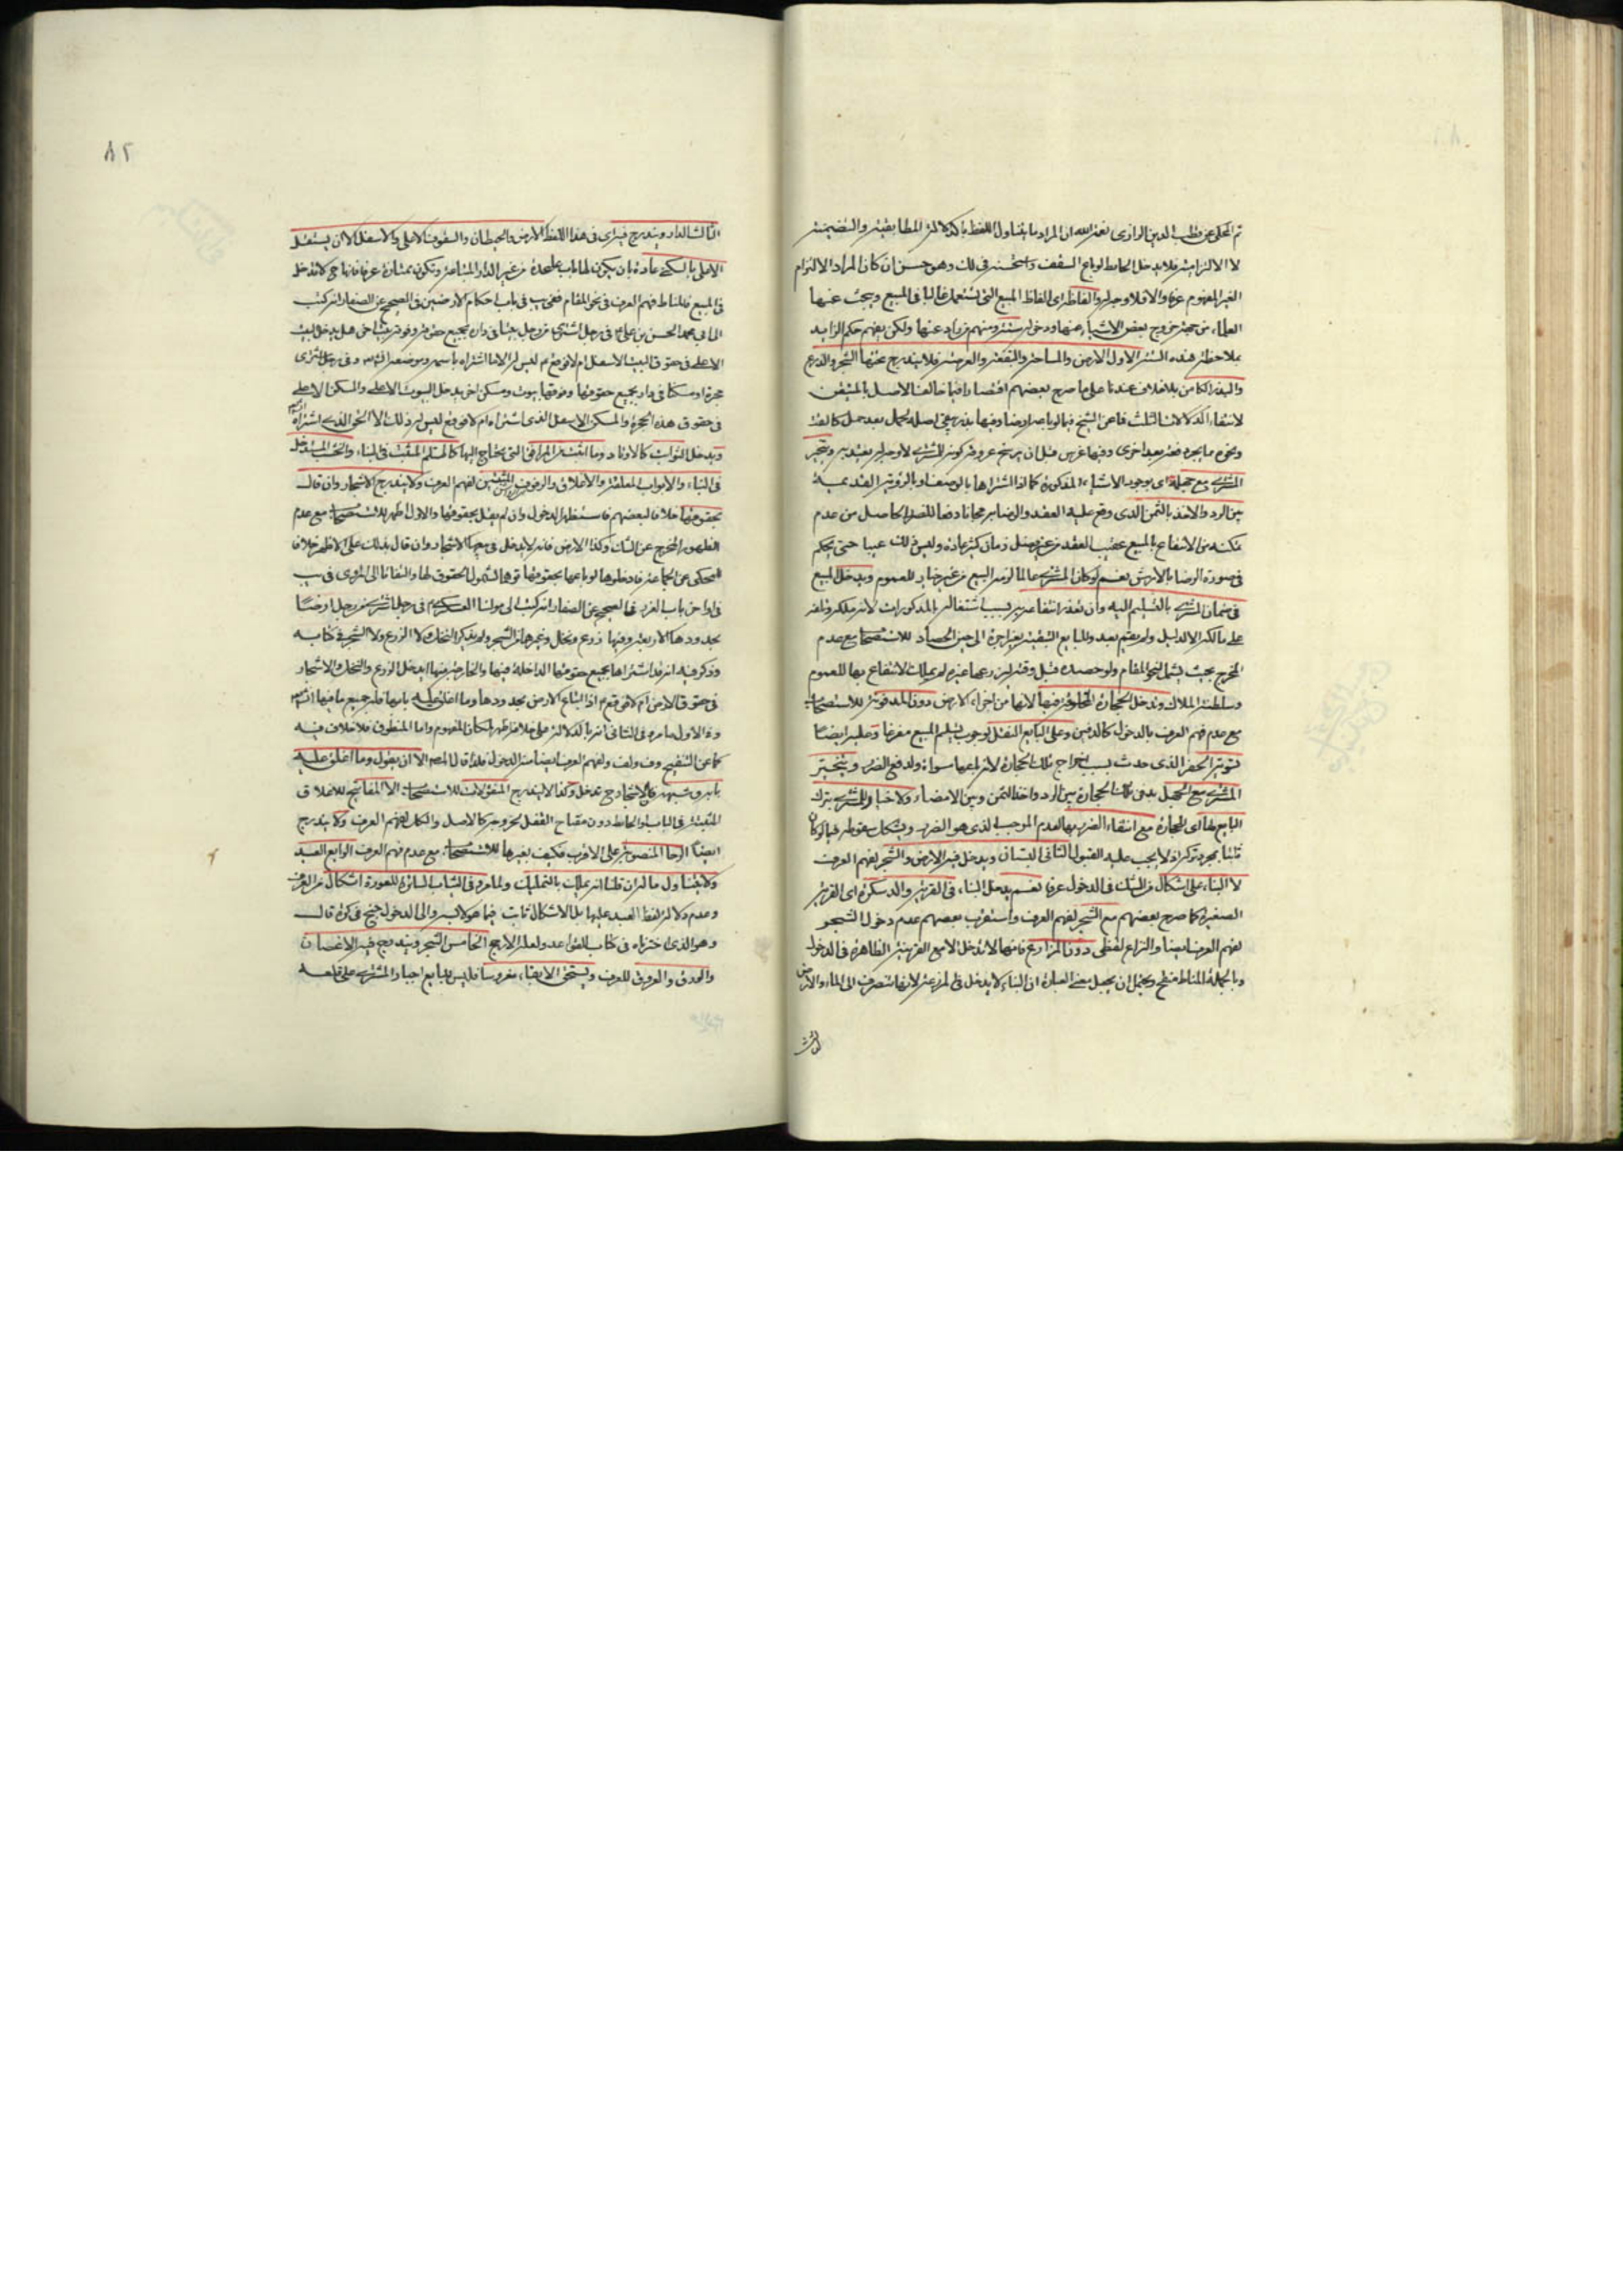 ثم المحكى عن قطب الدين الرازى نغمده الله ان المراد بما يتناول اللفظ بالدلالة المطابقية والتضمنية
لا الالتزامية فلا يدخل الحايط لو باع السقف واستحسنه فى ذلك وهو حسن ان كان المراد الالتزام
الغير المفهوم عرفا والا فلا وجه له والفاظه اى الفاظ المبيع التى تستعمل غالبا فى المبيع ويبحث عنها
العلماء من جهة خروج بعض الاشياء عنها ودخوله ستة ومنهم من زاد عنها ولكن يفهم حكم الزايد
بملاحظة هذه الستة الاول الارض والساحة والبقعة والعرصة فلا يندرج تحتها الشجر والزرع
والبذر الكامن بلا خلاف عندنا على ما صرح بعضهم اقتصارا فيما خالف الاصل بالمتيقن
لانتفاء الدلالات الثلث فما عن الشيخ فيما لو باعه ارضا وفيها بذر يبقى اصله لحمل بعد حمل كالقت
ونحوه مما يجزه دفعة بعد اخرى وفيها غرس قبل ان يرسخ عروقه كونه للمشترى لا وجه له يعتد به ويتخير
المشترى مع جهله اى بوجود الاشياء المذكورة كما اذا اشتراها بالوصف او بالرؤية القديمة
بين الرد والاخذ بالثمن الذى وقع عليه العقد والرضا به مجانا دفعا للضرر الحاصل من عدم
تمكنه من الانتفاع بالمبيع عقيب العقد من غير مضى زمان كثير عادة وليس ذلك عيبا حتى يحكم
فى صورة الرضا بالارش نعم لو كان المشترى عالما لزمه البيع من غير خيار للعموم ويدخل المبيع
فى ضمان المشترى بالتسليم اليه وان تعذر انتفاعه به بسبب اشتغاله بالمذكورات لانه ملكه وتلفه
على مالكه الا لدليل ولم يقم بعد وللبايع التبقية بغير اجرة الى حين الحصاد للاستصحاب مع عدم
المخرج بحيث يشمل نحو المقام ولو حصده قبل وقته ليزرعها غيره لم يملك الانتفاع بها للعموم
وسلطنة الملاك وتدخل الحجارة المخلوقة فيها لانها من اجزاء الارض دون المدفونة للاستصحاب
مع عدم فهم العرف بالدخول كالدفين وعلى البايع النقل لوجوب تسليم المبيع مفرغا وعليه ايضا
تسوية الحفر الذى حدث بسبب اخراج تلك الحجارة لا ترابها سواه ولدفع الضرر ويتخير
المشترى مع الجهل بدفن تلك الحجارة بين الرد واخذ الثمن وبين الامضاء ولا خيار للمشترى بترك
البايع لها اى الحجارة مع انتفاء الضرر بها لعدم الموجب الذى هو الضرر ويشكل سقوطه فيما لو كان
ثابتا بمجرد تركه اذ لا يجب عليه القبول الثانى البستان ويدخل فيه الارض والشجر لفهم العرف
لا البناء على اشكال من الشك فى الدخول عرفا نعم يدخل البناء فى القرية والدسكرة اى القرية
الصغيرة كما صرح بعضهم مع الشجر لفهم العرف واستقرب بعضهم عدم دخول الشجر
لفهم العرف ايضا والنزاع لفظى دون المزارع فانها لا تدخل الا مع القرينة الظاهرة فى الدخول
وبالجملة المناط متضح ويحتمل ان يجعل معنى العبارة ان البناء لا يدخل فى المزرعة لانها تنصرف الى الماء والارض
الثالث
٨٢
الثالث الدار ويندرج فيه اى فى هذا اللفظ الارض والحيطان والسقوف الاعلى والاسفل الا ان يستقل
الاعلى بالسكنى عادة بان يكون لها باب على حدة من غير الدار المبتاعة وتكون ممتازة عرفا فانها ح لا تدخل
فى المبيع فالمناط فهم العرف فى نحو المقام ففى يب فى باب احكام الارضين فى الصحيح عن الصفار انه كتب
الى ابى محمد الحسن بن على ع فى رجل اشترى من رجل بيتا فى داره بجميع حقوقه وفوقه بيت اخر هل يدخل البيت
الاعلى فى حقوق البيت الاسفل ام لا فوقع ع ليس له الا ما اشتراه باسمه وموضعه انشاء الله وفى رجل اشترى
حجرة او مسكنا فى دار بجميع حقوقها وفوقها بيوت ومسكن اخر يدخل البيوت الاعلى والمسكن الاعلى
فى حقوق هذه الحجرة والمسكن الاسفل الذى اشتراه ام لا فوقع ليس له من ذلك الا الحق الذى اشتراه انشاء
ويدخل الثوابت كالاوتاد وما اثبت من المرافق التى يحتاج اليها كالسلم المثبت فى البناء والخشب المستدخل
فى البناء والابواب المعلقة والاغلاق والرفوف المثبتين لفهم العرف ولا يندرج الاشجار وان قال
بحقوقها خلافا لبعضهم فاستظهر الدخول وان لم يقل بحقوقها والاول اظهر للاستصحاب مع عدم
الظهور المخرج عن الشك وكذا الارض فانه لا يدخل فى بيعها الاشجار وان قال بذلك على الاظهر خلاف
المحكى عن الجماعة فادخلوها لو باعها بحقوقها توهما لشمول الحقوق لها والتفاتا الى المروى فى يب
فى اواخر باب الغرر فى الصحيح عن الصفار انه كتب الى مولانا العسكرى ع فى رجل اشترى من رجل ارضا
بحدودها الاربعة وفيها زرع ونخل وغيرهما من الشجر ولم يذكر النخل ولا الزرع ولا الشجر فى كتابه
وذكر فيه انه قد اشتراها بجميع حقوقها الداخلة فيها والخارجة منها ايدخل الزرع والنخل والاشجار
فى حقوق الارض ام لا فوقع ع اذا ابتاع الارض بحدودها وما اغلق عليه بابها فله جميع ما فيها انشاء الله
وفى الاول ما مر وفى الثانى انه بالدلالة على خلافه اظهر لمكان المفهوم واما المنطوق فلا خلاف فيه
كما عن التنقيح وف ولف ولفهم العرف ايضا منه الدخول فلذا قال المص الا ان يقول وما اغلق عليه
بابه وشبهه فالاشجار ح تدخل وكذا لا يندرج المنقولات للاستصحاب الا المفاتيح للاغلاق
المثبتة فى الباب او الحايط دون مفتاح القفل لخروجه كالاصل والكل لفهم العرف ولا يندرج
ايضا الرحا المنصوبة على الاقرب فكيف بغيرها للاستصحاب مع عدم فهم العرف الرابع العبد
ولا يتناول ماله ان قلنا انه يملك بالتمليك ولما مر وفى الثياب الساترة للعورة اشكال من العرف
وعدم دلالة لفظ العبد عليها بل الاشكال ثابت فيما هو لابسه والى الدخول جنح فى كرة قال
وهو الذى اخترناه فى كتاب القواعد ولعله الارجح الخامس الشجر ويندرج فيه الاغصان
والورق والعروق للعرف ويستحق الابقاء مغروسا فليس للبايع اجبار المشترى على قلعه